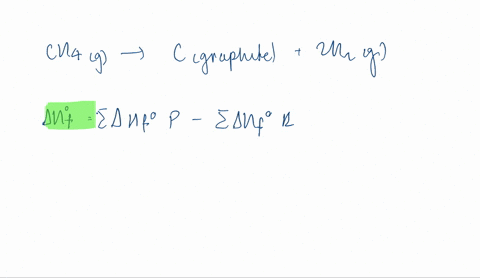 CH4 (g) → C (graphite) + 2H2 (g)
ΔHf° = ΣΔHf° P − ΣΔHf° R